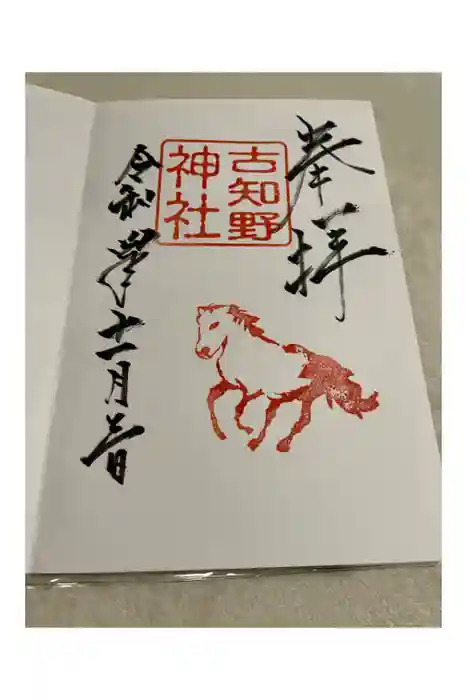 奉拝
古知野
神社
令和年十一月日